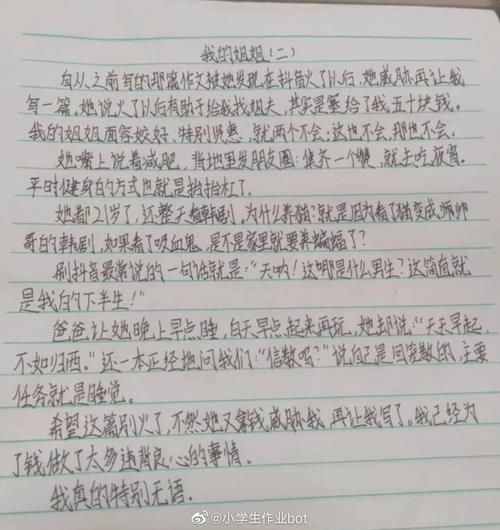 我的姐姐(二)
自从之前写的那篇作文被她发现在抖音火了以后,她威胁再让我
写一篇。她说火了以后有助于给我找姐夫,其实是塞给了我五十块钱。
我的姐姐面容姣好,特别贤惠,就两个不会:这也不会,那也不会。
她嘴上说着减肥,背地里发朋友圈:集齐一个赞,就去吃夜宵。
平时健身的方式也就是抬抬杠了。
她都21岁了,还整天看韩剧,为什么养猫?就是因为看了猫变成帅
哥的韩剧,如果看了吸血鬼,是不是家里就要养蝙蝠了?
刷抖音最常说的一句话就是:“天呐!这哪是什么男生?这简直就
是我的下半生!”
爸爸让她晚上早点睡,白天早点起来再玩,她却说:“天天早起,
不如归西。”还一本正经地问我们:“信教吗?”说自己是回笼教的,主要
任务就是睡觉。
希望这篇别火了,不然她又拿钱威胁我,再让我写了。我已经为
了钱做了太多违背良心的事情。
我真的特别无语。
@小学生作业bot